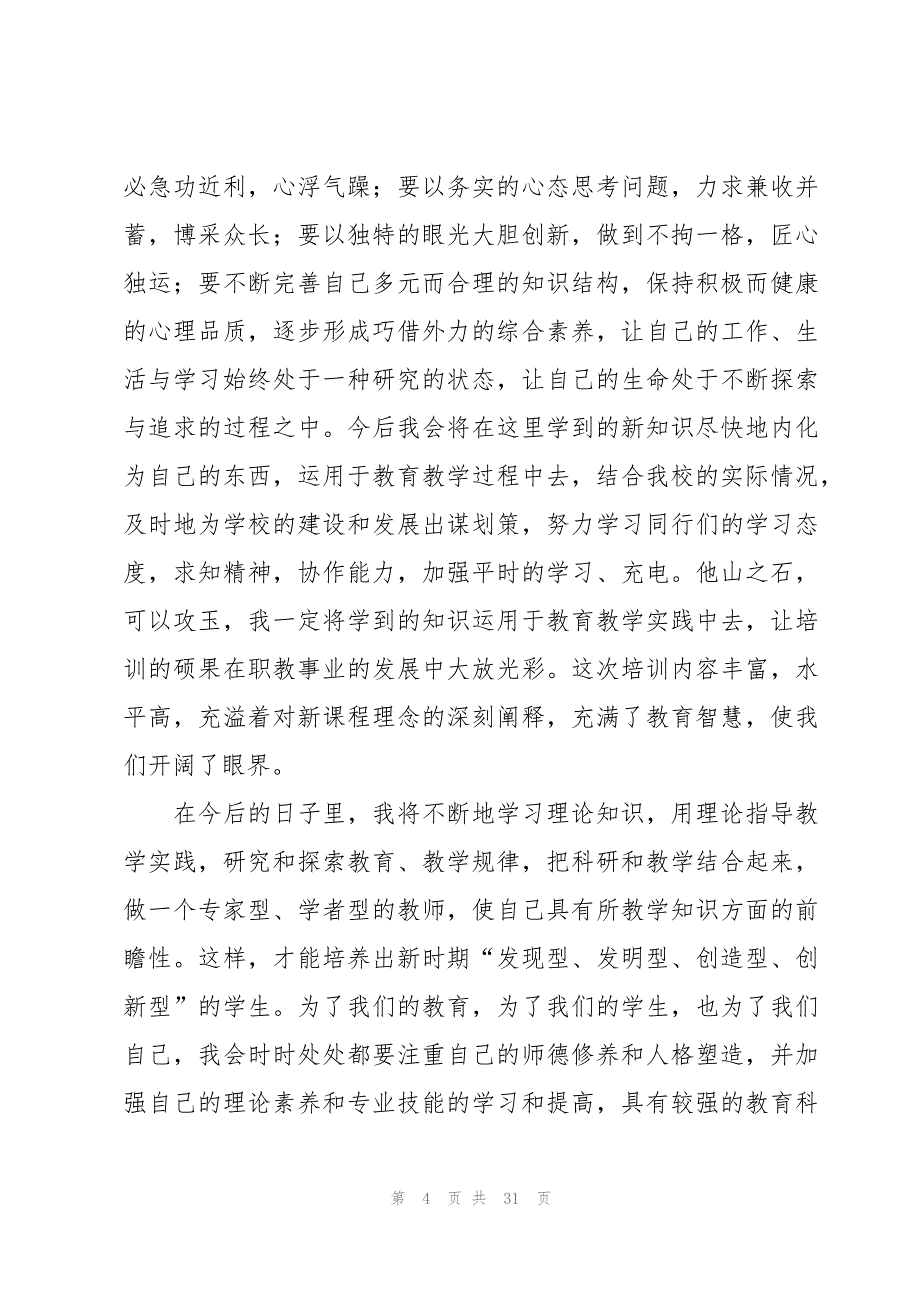 必急功近利，心浮气躁；要以务实的心态思考问题，力求兼收并
蓄，博采众长；要以独特的眼光大胆创新，做到不拘一格，匠心
独运；要不断完善自己多元而合理的知识结构，保持积极而健康
的心理品质，逐步形成巧借外力的综合素养，让自己的工作、生
活与学习始终处于一种研究的状态，让自己的生命处于不断探索
与追求的过程之中。今后我会将在这里学到的新知识尽快地内化
为自己的东西，运用于教育教学过程中去，结合我校的实际情况，
及时地为学校的建设和发展出谋划策，努力学习同行们的学习态
度，求知精神，协作能力，加强平时的学习、充电。他山之石，
可以攻玉，我一定将学到的知识运用于教育教学实践中去，让培
训的硕果在职教事业的发展中大放光彩。这次培训内容丰富，水
平高，充溢着对新课程理念的深刻阐释，充满了教育智慧，使我
们开阔了眼界。
在今后的日子里，我将不断地学习理论知识，用理论指导教
学实践，研究和探索教育、教学规律，把科研和教学结合起来，
做一个专家型、学者型的教师，使自己具有所教学知识方面的前
瞻性。这样，才能培养出新时期“发现型、发明型、创造型、创
新型”的学生。为了我们的教育，为了我们的学生，也为了我们
自己，我会时时处处都要注重自己的师德修养和人格塑造，并加
强自己的理论素养和专业技能的学习和提高，具有较强的教育科
第 4 页 共 31 页